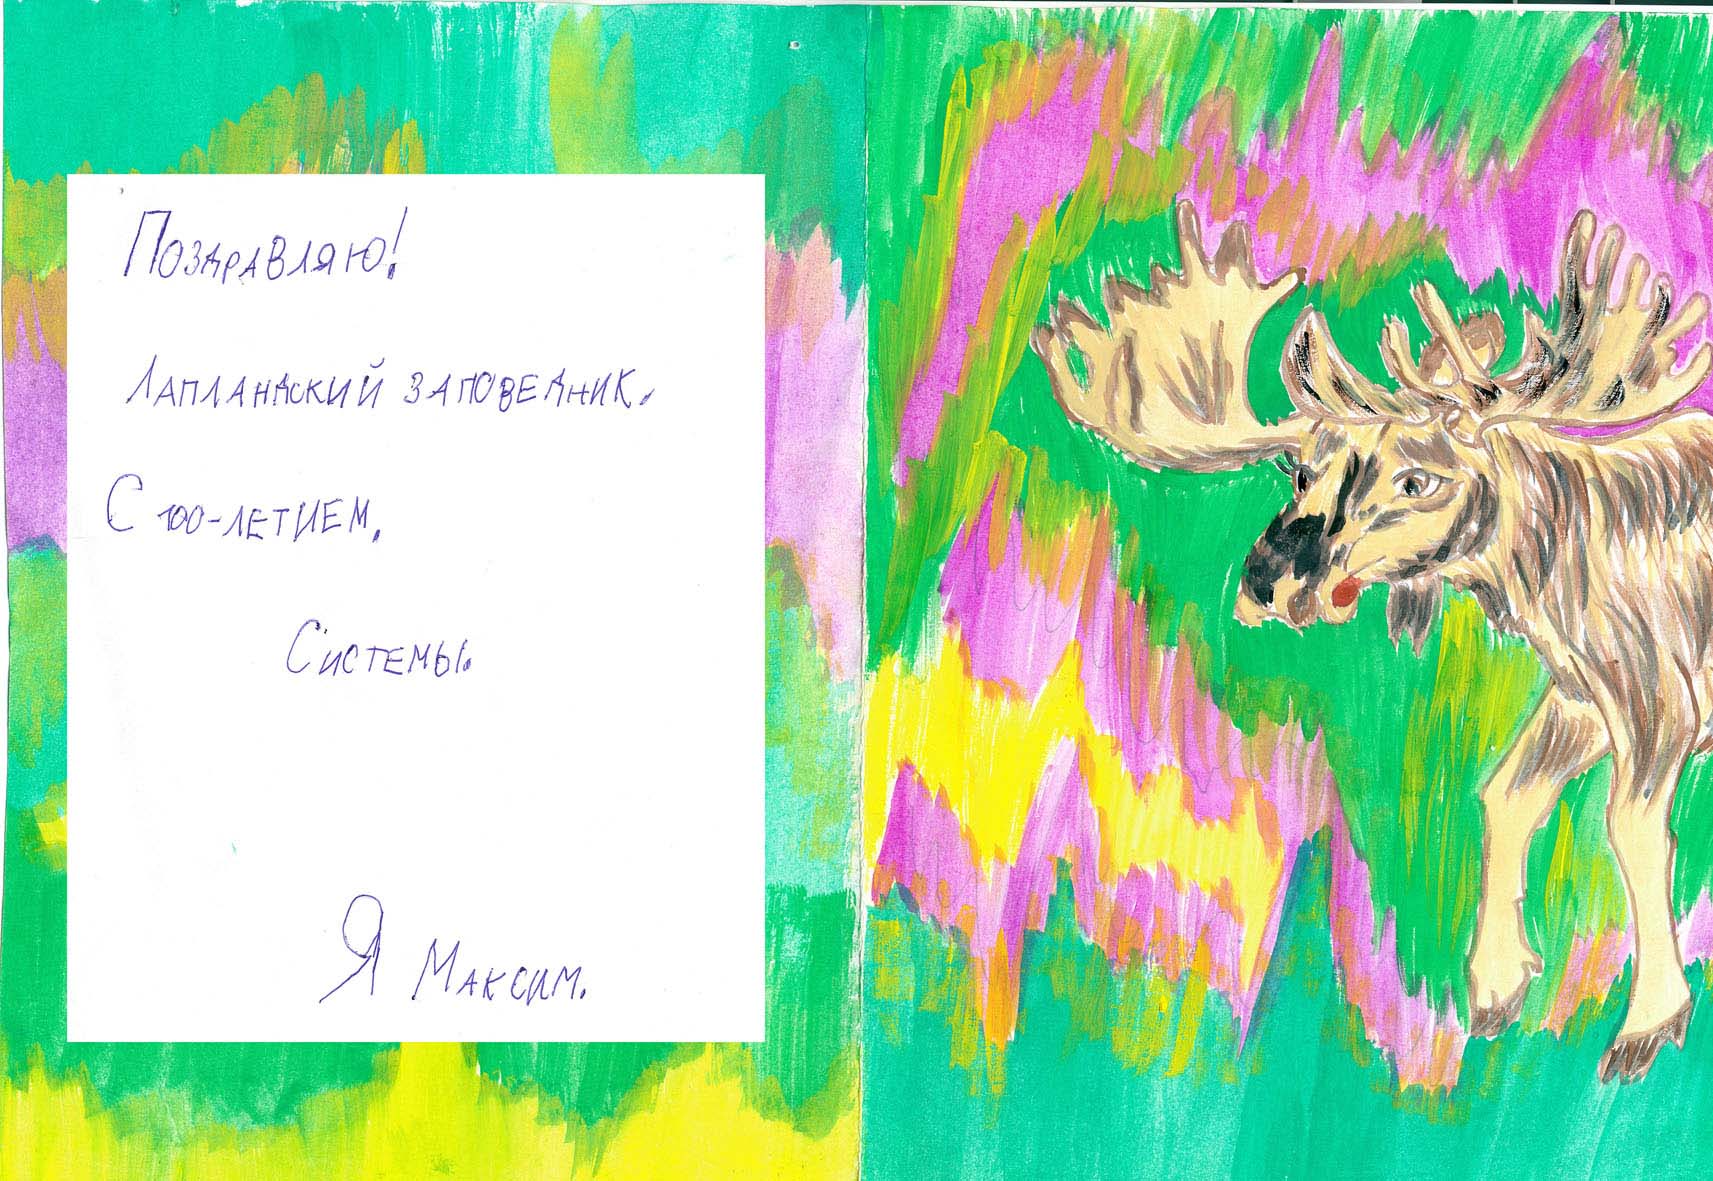 Поздравляю!
Лапландский заповедник.
С 100-летием.
Системы.
Я Максим.